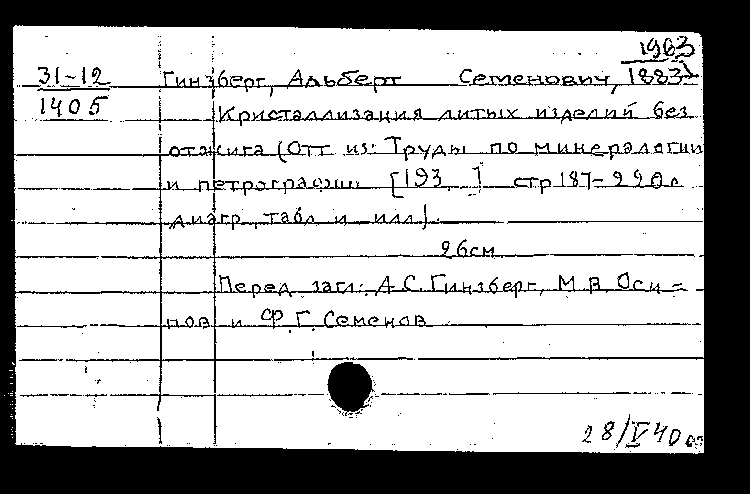 1963
31-12 Гинзберг, Альберт Семенович, 1883-
1405 Кристаллизация литых изделий без
отжига (Отт из: Труды по минералогии
и петрографии [193 ] стр 187-220 л
диагр, табл и илл).
26см
Перед загл: А.С. Гинзберг, М.В. Оси=
пов и Ф.Г. Семенов
28/V 40